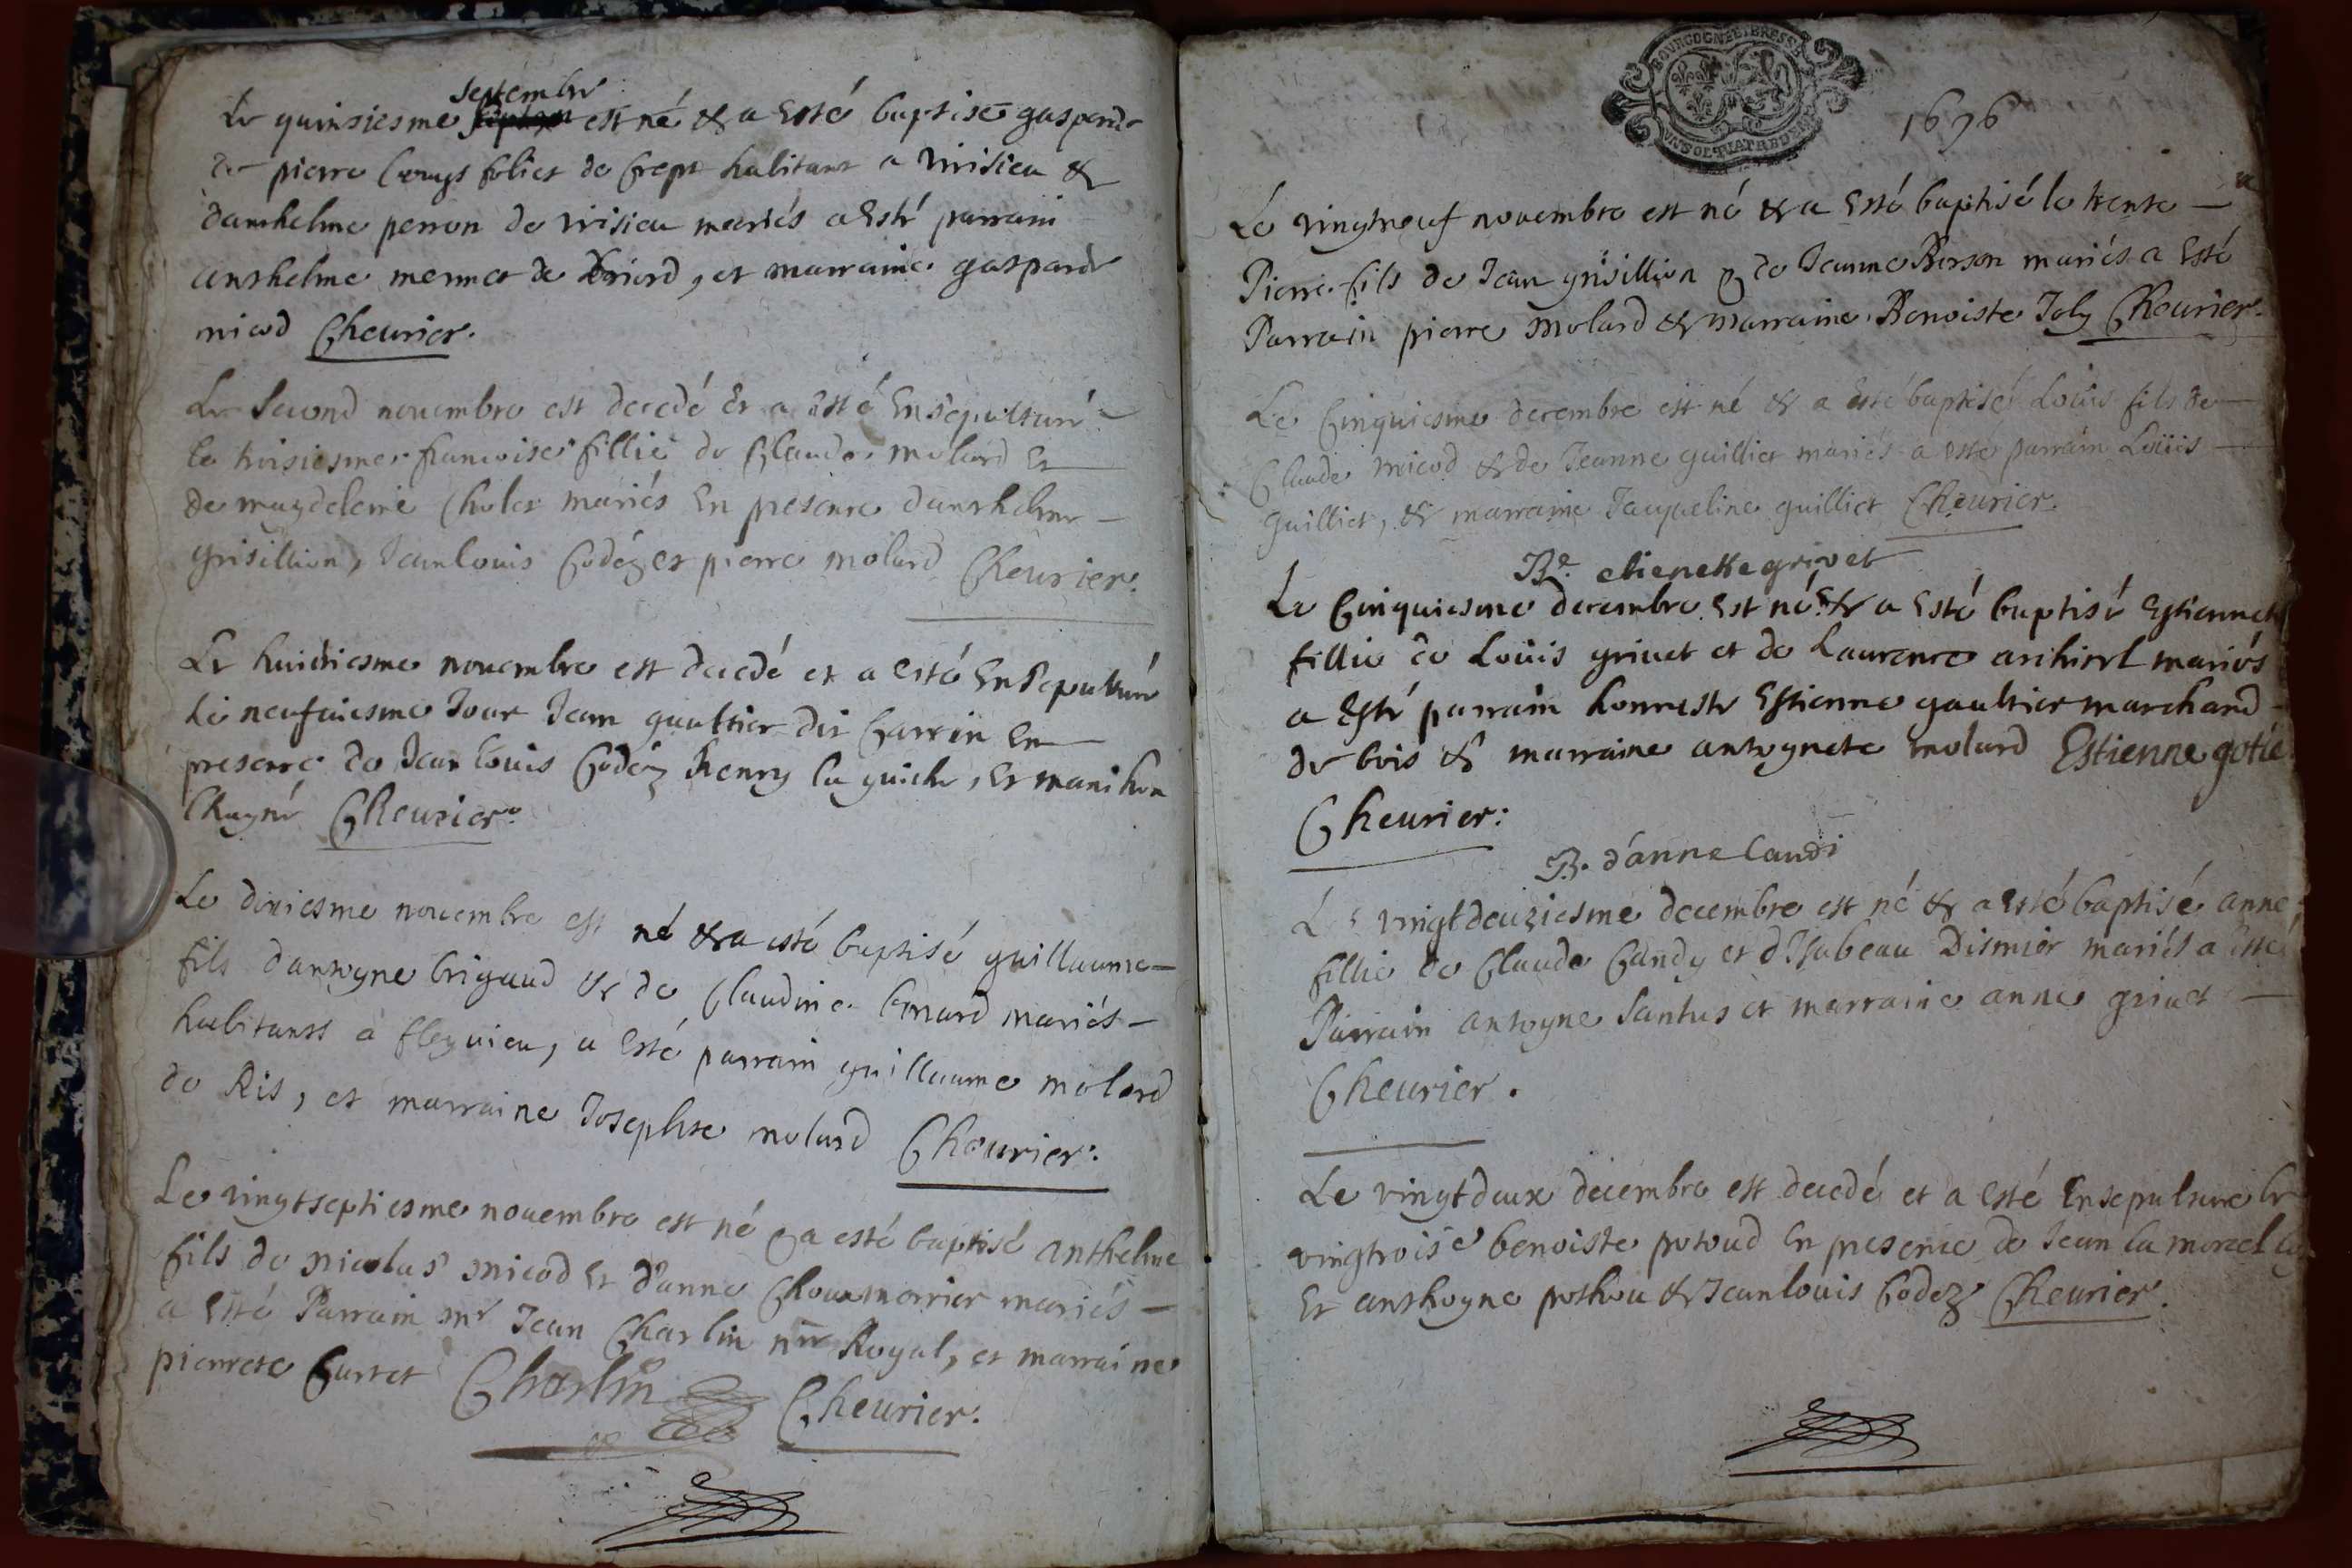 septembre
Le quinsiesme est né & a esté baptisé gasparde
de pierre foliet de crept habitant a virisieu &
danthelme perron de virisieu mariés a esté parrain
anthelme mermet de briord, et marraine gasparde
micod Cheurier.
Le second nouembre est decedé et a esté ensepulturé
le troisiesme francoise fillie de Claude molard et
de magdeleine Cholet mariés en presence danthelme
grisillion, Jean louis Godéz et pierre molard Cheurier.
Le huictiesme nouembre est decedé et a esté ensepulturé
le neufuiesme Jour Jean gaultier dit Garrin en
presence de Jean louis Godéz henry la guiche, et
Cheurier.
Le diziesme nouembre est né & a esté baptisé guillaume
fils dantoyne brigaud & de Claudine mariés
habitants a flegnieu, a esté parrain guillaume molard
de Ris, et marraine Josephte molard Cheurier.
Le vingtseptiesme nouembre est né & a esté baptisé anthelme
fils de nicolas micod et d'anne mariés
a esté Parrain mr Jean Charlin nre Royal, et marraine
pierrete Curtet Charlin Cheurier.
BOURGOGNE ET BRESSE
1696
Le vingtneuf nouembre est né & a esté baptisé le trente
Pierre fils de Jean grisillion & de Jeanne Berson mariés a esté
Parrain pierre molard & marraine Benoiste Joly Cheurier.
Le Cinquiesme decembre est né & a esté baptisé Loüis fils de
Claude micod & de Jeanne guilliet mariés a esté parrain Loüis
guilliet, & marraine Jaqueline guilliet Cheurier.
Be. etienette grivet
Le Cinquiesme decembre est né & a esté baptisé Estiennete
fillie de Loüis griuet et de Laurence mariés
a esté parrain honneste Estienne gaultier marchand
de bois & marraine antoynete molard Estienne gotie
Cheurier:
B. d'anne Candi
Le vingtdeuziesme decembre est né & a esté baptisé anne
fillie de Claude Candy et d'Isabeau Dismier mariés a esté
Parrain antoyne Santus et marraine anne griuet
Cheurier.
Le vingtdeux decembre est decedé et a esté Ensepulture le
vingtroise benoiste potoud en presence de Jean la
Et anthoyne pothou & Jeanlouis Godez Cheurier.